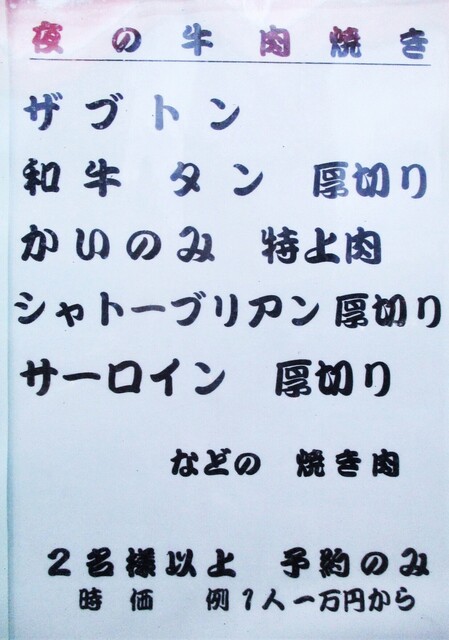 夜の牛肉焼き
ザブトン
和牛 タン 厚切り
かいのみ 特上肉
シャトーブリアン 厚切り
サーロイン 厚切り
などの 焼き肉
2名様以上 予約のみ
時価 例 1人一万円から